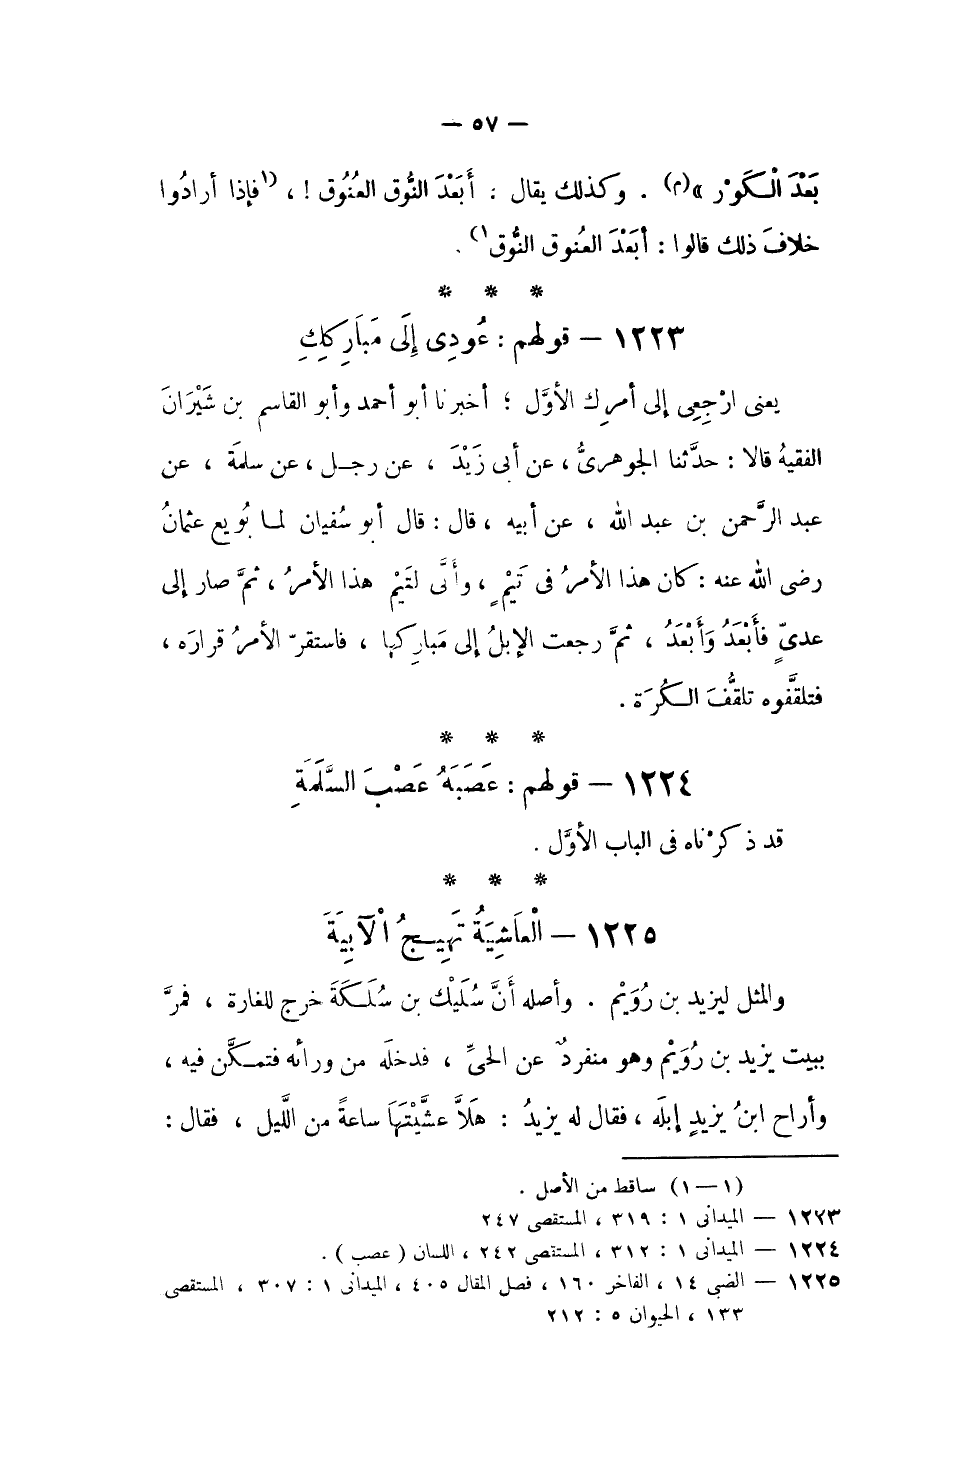 — ٥٧ —
بَعْدَ الْكَوْرِ »(م) . وكذلك يقال : أَبَعْدَ النُّوق العُنُوق ! ، (١فإذا أرادُوا
خلافَ ذلك قالوا : أبَعْدَ العُنوق النُّوق١) .
* * *
١٢٢٣ — قولهم : عُودِى إِلَى مَبَارِكِكِ
يعنى ارْجِعِى إلى أمرِك الأوَّل ؛ أخبرنا أبو أحمد وأبو القاسم بن شَيْرَانَ
الفقيهُ قالا : حدَّثنا الجوهرىُّ ، عن أبى زَيْدَ ، عن رجل ، عن سلمَة ، عن
عبد الرَّحمن بن عبد الله ، عن أبيه ، قال : قال أبو سُفيان لما بُويع عثمانُ
رضى الله عنه : كان هذا الأمرُ فى تَيْمٍ ، وأَنَّى لتَيْمٍ هذا الأمرُ ، ثمَّ صار إلى
عدىٍّ فأَبْعَدُ وَأَبْعَدُ ، ثمَّ رجعت الإبلُ إلى مَبارِكها ، فاستقرّ الأمرُ قرارَه ،
فتلقَّفوه تلقُّفَ الكُرَة .
* * *
١٢٢٤ — قولهم : عَصَبَهُ عَصْبَ السَّلَمَةِ
قد ذكرْناه فى الباب الأوَّل .
* * *
١٢٢٥ — الْعَاشِيَةُ تَهِيجُ الْآبِيَةَ
والمثل ليزيد بن رُوَيْم . وأصله أَنَّ سُلَيْك بن سُلَكَةَ خرج للغارة ، فمرَّ
ببيت يزيد بن رُوَيْم وهو منفردٌ عن الحىِّ ، فدخلَه من ورائه فتمكَّن فيه ،
وأراح ابنُ يزيدٍ إبلَه ، فقال له يزيدُ : هَلاَّ عشَّيْتَهَا ساعةً من اللَّيل ، فقال :
(١—١) ساقط من الأصل .
١٢٢٣ — الميدانى ١ : ٣١٩ ، المستقصى ٢٤٧
١٢٢٤ — الميدانى ١ : ٣١٢ ، المستقصى ٢٤٢ ، اللسان ( عصب ) .
١٢٢٥ — الضبى ١٤ ، الفاخر ١٦٠ ، فصل المقال ٤٠٥ ، الميدانى ١ : ٣٠٧ ، المستقصى
١٣٣ ، الحيوان ٥ : ٢١٢